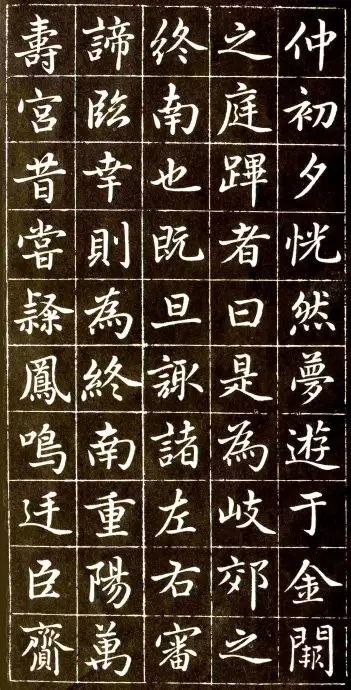 仲初夕恍然夢遊于金闕
之庭蹕者曰是為岐郊之
終南也既旦諏諸左右審
諦臨幸則為終南重陽萬
壽宮昔嘗隸鳳鳴迋臣齎